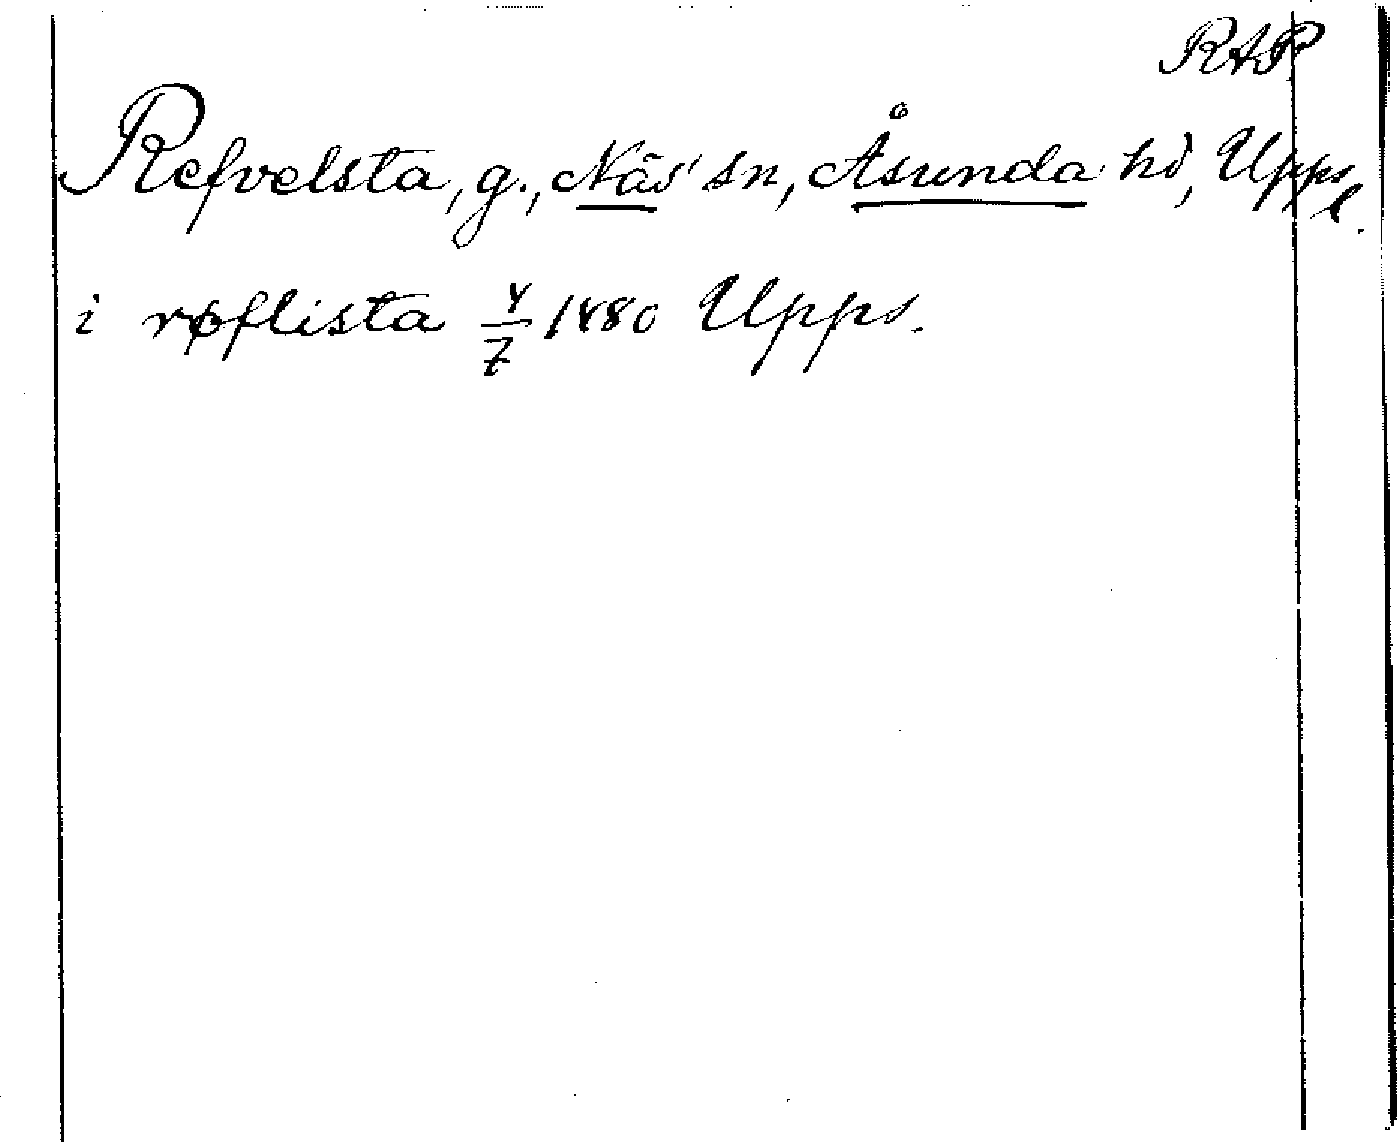 RAP
Refvelsta, g., Näs' sn, Åsunda hd, Upps. l.
i røflista 4/7 1480 Upps.